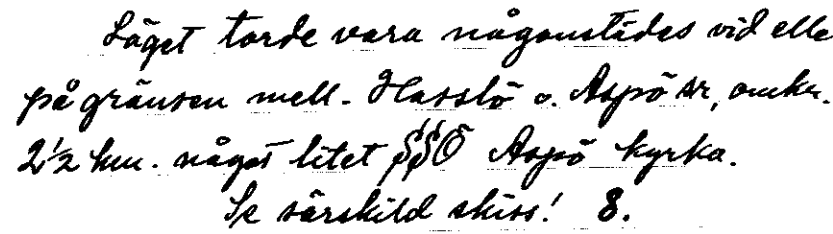 Läget torde vara någonstädes vid elle
på gränsen mell. Hasslö o. Aspö sr, omkr.
2½ km. något litet SSO Aspö kyrka.
Se särskild skiss! 8.